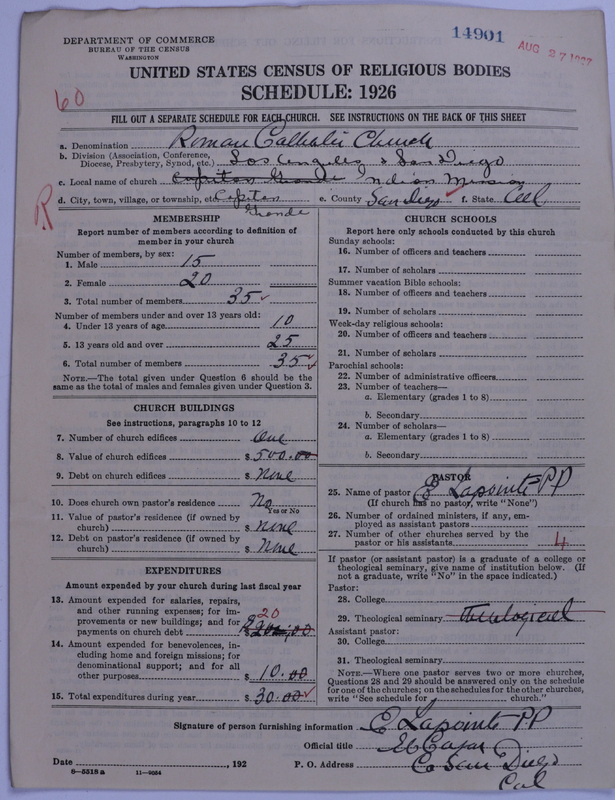 14901
AUG 27 1927
DEPARTMENT OF COMMERCE
BUREAU OF THE CENSUS
WASHINGTON
UNITED STATES CENSUS OF RELIGIOUS BODIES
SCHEDULE: 1926
60
FILL OUT A SEPARATE SCHEDULE FOR EACH CHURCH. SEE INSTRUCTIONS ON THE BACK OF THIS SHEET
a. Denomination Roman Catholic Church
b. Division (Association, Conference, Diocese, Presbytery, Synod, etc.) Los Angeles & San Diego
c. Local name of church Capitan Grande Indian Mission
R
d. City, town, village, or township, etc. Capitan Grande e. County San Diego f. State Cal
MEMBERSHIP
Report number of members according to definition of
member in your church
Number of members, by sex:
1. Male 15
2. Female 20
3. Total number of members 35
Number of members under and over 13 years old:
4. Under 13 years of age 10
5. 13 years old and over 25
6. Total number of members 35
NOTE.—The total given under Question 6 should be
same as the total of males and females given under Question 3.
CHURCH BUILDINGS
See instructions, paragraphs 10 to 12
7. Number of church edifices One
8. Value of church edifices $ 500.00
9. Debt on church edifices $ None
10. Does church own pastor's residence No
Yes or No
11. Value of pastor's residence (if owned by
church) $ None
12. Debt on pastor's residence (if owned by
church) $ None
EXPENDITURES
Amount expended by your church during last fiscal year
13. Amount expended for salaries, repairs,
and other running expenses; for im-
provements or new buildings; and for
payments on church debt $ 20
14. Amount expended for benevolences, in-
cluding home and foreign missions; for
denominational support; and for all
other purposes $ 10.00
15. Total expenditures during year $ 30.00
CHURCH SCHOOLS
Report here only schools conducted by this church
Sunday schools:
16. Number of officers and teachers
17. Number of scholars
Summer vacation Bible schools:
18. Number of officers and teachers
19. Number of scholars
Week-day religious schools:
20. Number of officers and teachers
21. Number of scholars
Parochial schools:
22. Number of administrative officers
23. Number of teachers—
a. Elementary (grades 1 to 8)
b. Secondary
24. Number of scholars—
a. Elementary (grades 1 to 8)
b. Secondary
PASTOR
25. Name of pastor E Lapointe PP
(If church has no pastor, write "None")
26. Number of ordained ministers, if any, em-
ployed as assistant pastors
27. Number of other churches served by the
pastor or his assistants 4
If pastor (or assistant pastor) is a graduate of a college or
theological seminary, give name of institution below. (If
not a graduate, write "No" in the space indicated.)
Pastor:
28. College
29. Theological seminary Theological
Assistant pastor:
30. College
31. Theological seminary
NOTE.—Where one pastor serves two or more churches,
Questions 28 and 29 should be answered only on the schedule
for one of the churches; on the schedules for the other churches,
write "See schedule for church."
Signature of person furnishing information E Lapointe PP
Official title El Cajon
Date , 192 P. O. Address Co San Diego
Cal
8—5518 a 11—9034